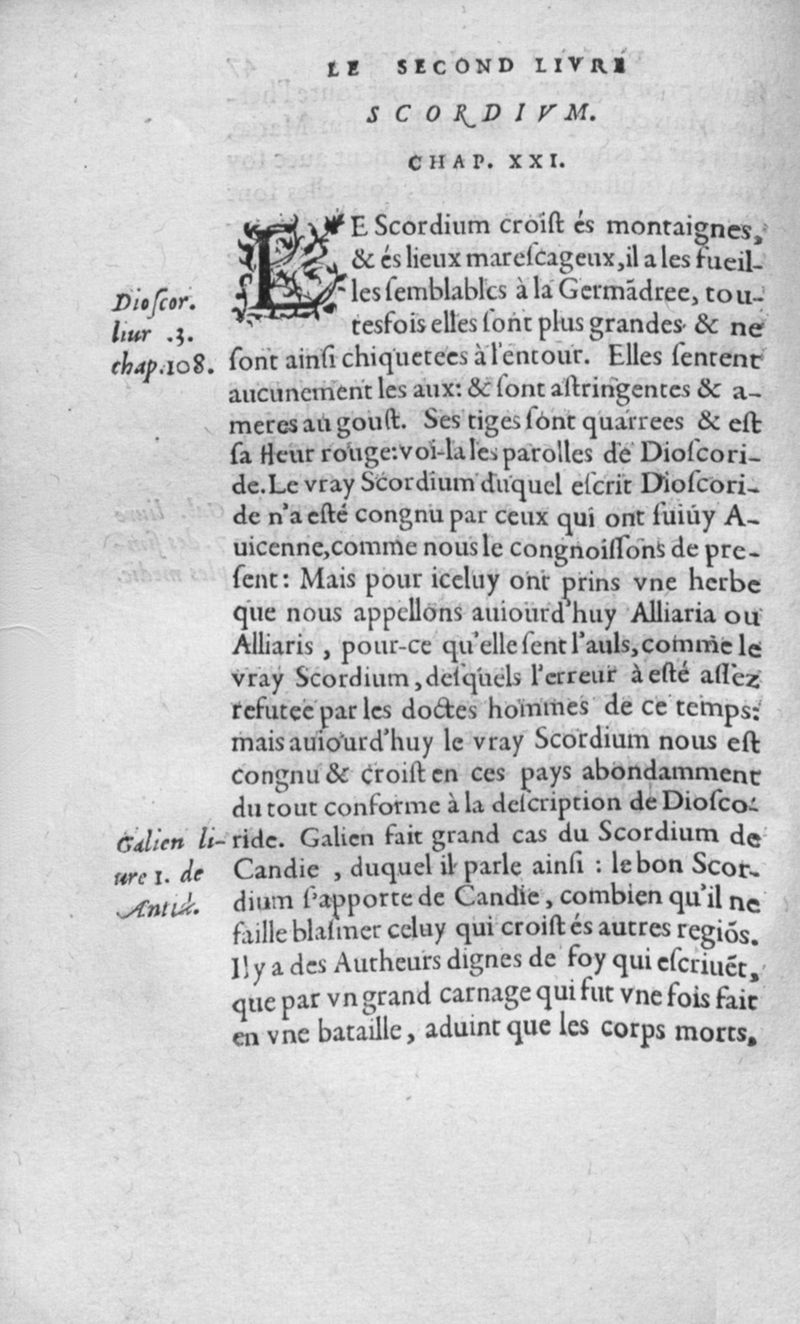 LE SECOND LIVRE
SCORDIVM.
CHAP. XXI.
LE Scordium croiſt és montaignes,
& és lieux mareſcageux, il a les fueil-
les ſemblables à la Germãdree, tou-
tesfois elles ſont plus grandes & ne
ſont ainſi chiquetees à l'entour. Elles ſentent
aucunement les aux: & ſont aſtringentes & a-
meres au gouſt. Ses tiges ſont quarrees & eſt
ſa fleur rouge: voi-la les parolles de Dioſcori-
de. Le vray Scordium duquel eſcrit Dioſcori-
de n'a eſté congnu par ceux qui ont ſuiuy A-
uicenne, comme nous le congnoiſſons de pre-
ſent: Mais pour iceluy ont prins vne herbe
que nous appellons auiourd'huy Alliaria ou
Alliaris, pour-ce qu'elle ſent l'auls, comme le
vray Scordium, deſquels l'erreur à eſté aſſez
refutee par les doctes hommes de ce temps:
mais auiourd'huy le vray Scordium nous eſt
congnu & croiſt en ces pays abondamment
du tout conforme à la deſcription de Dioſco-
ride. Galien fait grand cas du Scordium de
Candie, duquel il parle ainſi: le bon Scor-
dium s'apporte de Candie, combien qu'il ne
faille blaſmer celuy qui croiſt és autres regiõs.
Il y a des Autheurs dignes de foy qui eſcriuẽt,
que par vn grand carnage qui fut vne fois fait
en vne bataille, aduint que les corps morts,
Dioſcor.
liur .3.
chap.108.
Galien li-
ure 1. de
Antid.